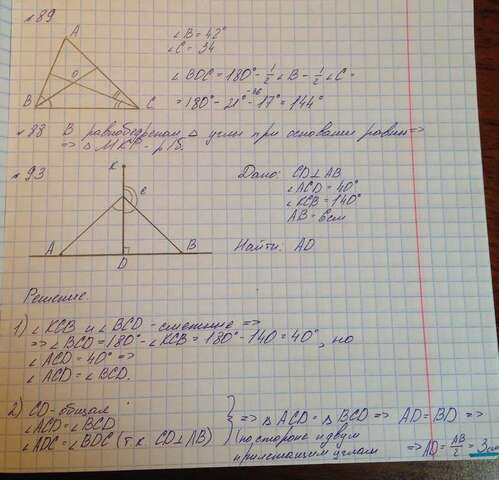 №89
A
B
O
C
∠B = 42°
∠C = 34
∠BOC = 180° - 1/2 ∠B - 1/2 ∠C =
= 180° - 21° - 17° = 144°
№88 В равнобедренном △ углы при основании равны =>
=> △ MKF - р/б.
№93
K
C
A
B
D
Дано: CD⊥AB
∠ACD = 40°
∠KCB = 140°
AB = 6см
Найти: AD
Решение.
1) ∠KCB и ∠BCD - смежные =>
=> ∠BCD = 180° - ∠KCB = 180° - 140 = 40°, но
∠ACD = 40° =>
∠ACD = ∠BCD.
2) CD - общая
∠ACD = ∠BCD
∠ADC = ∠BDC (т.к CD⊥AB)
=> △ACD = △BCD => AD = BD =>
(по стороне и двум
прилежащим углам
=> AD = AB/2 = 3см